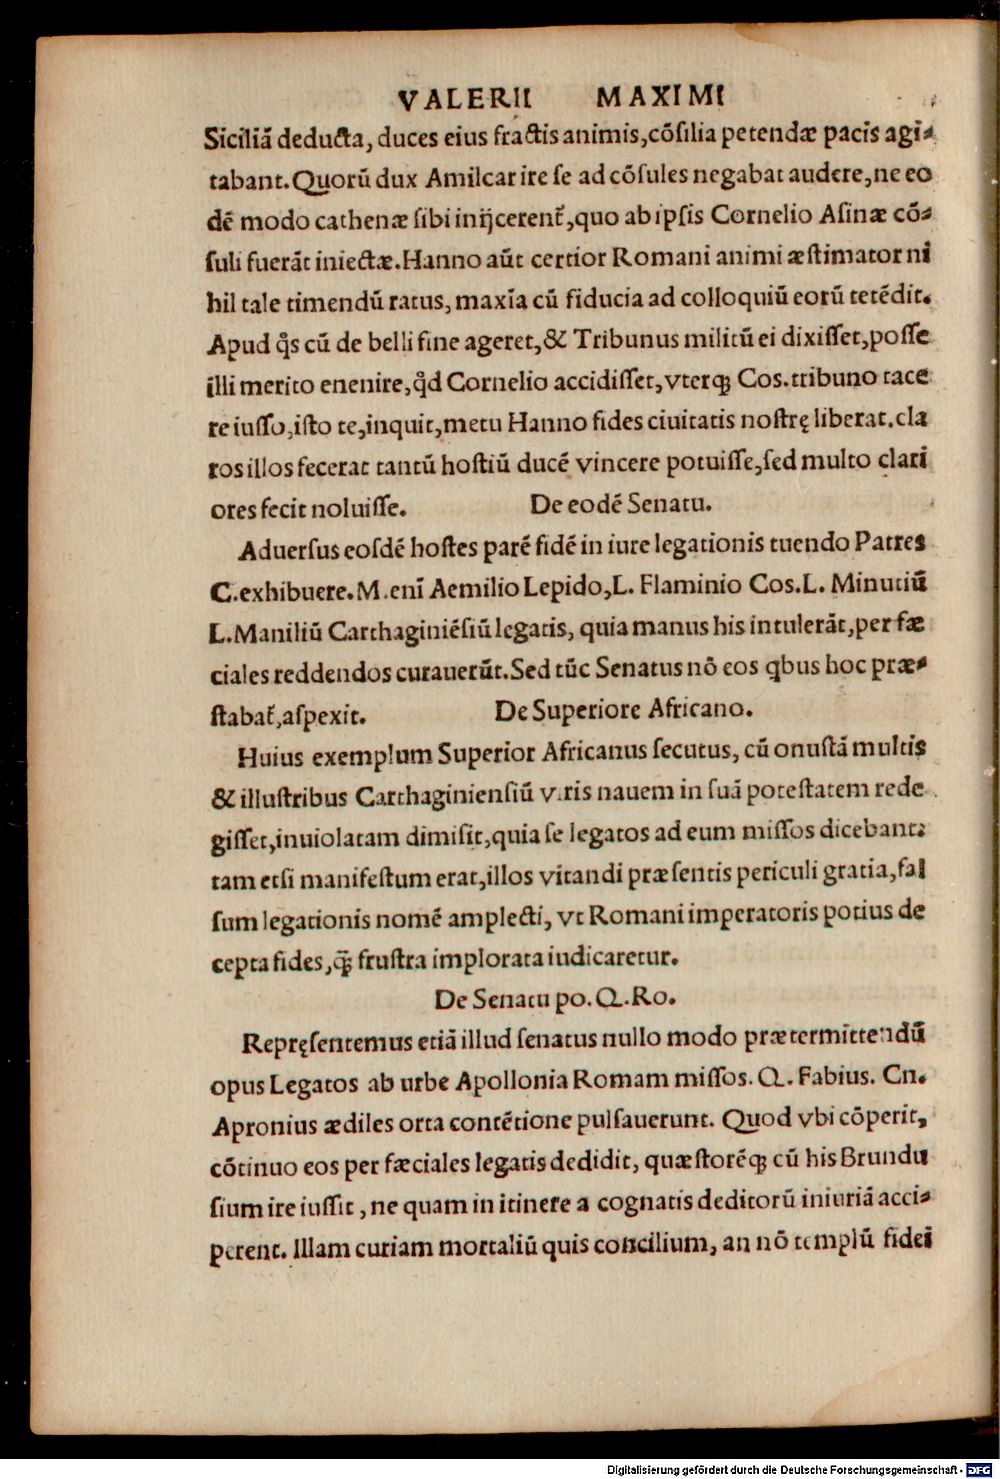 VALERII MAXIMI
Siciliã deducta, duces eius fractis animis,cõſilia petendæ pacis agi-
tabant.Quorũ dux Amilcar ire ſe ad cõſules negabat audere,ne eo
dẽ modo cathenæ ſibi inijcerent᷑,quo ab ipſis Cornelio Aſinæ cõ-
ſuli fuerãt iniectæ.Hanno aũt certior Romani animi æſtimator ni
hil tale timendũ ratus, maxĩa cũ fiducia ad colloquiũ eorũ tetẽdit.
Apud q̃s cũ de belli fine ageret,& Tribunus militũ ei dixiſſet,poſſe
illi merito enenire,q̃d Cornelio accidiſſet,vterq; Cos.tribuno tace
re iuſſo,iſto te,inquit,metu Hanno fides ciuitatis noſtrę liberat.cla
ros illos fecerat tantũ hoſtiũ ducẽ vincere potuiſſe,ſed multo clari
ores fecit noluiſſe. De eodẽ Senatu.
Aduerſus eoſdẽ hoſtes parẽ fidẽ in iure legationis tuendo Patres
C.exhibuere.M.enĩ Aemilio Lepido,L. Flaminio Cos.L. Minutiũ
L.Maniliũ Carthaginiẽſiũ legatis, quia manus his intulerãt,per fæ
ciales reddendos curauerũt.Sed tũc Senatus nõ eos qbus hoc præ-
ſtabat᷑,aſpexit. De Superiore Africano.
Huius exemplum Superior Africanus ſecutus, cũ onuſtã multis
& illuſtribus Carthaginienſiũ viris nauem in ſuã poteſtatem rede
giſſet,inuiolatam dimiſit,quia ſe legatos ad eum miſſos dicebant:
tam etſi manifeſtum erat,illos vitandi præſentis periculi gratia,fal
ſum legationis nomẽ amplecti, vt Romani imperatoris potius de
cepta fides,q̃; fruſtra implorata iudicaretur.
De Senatu po. Q.Ro.
Repręſentemus etiã illud ſenatus nullo modo prætermittendũ
opus Legatos ab urbe Apollonia Romam miſſos. Q. Fabius. Cn.
Apronius ædiles orta contẽtione pulſauerunt. Quod vbi cõperit,
cõtinuo eos per fæciales legatis dedidit, quæſtorẽq; cũ his Brundu
ſium ire iuſſit , ne quam in itinere a cognatis deditorũ iniuriã acci-
perent. Illam curiam mortaliũ quis concilium, an nõ templũ fidei
Digitalisierung gefördert durch die Deutsche Forschungsgemeinschaft - DFG